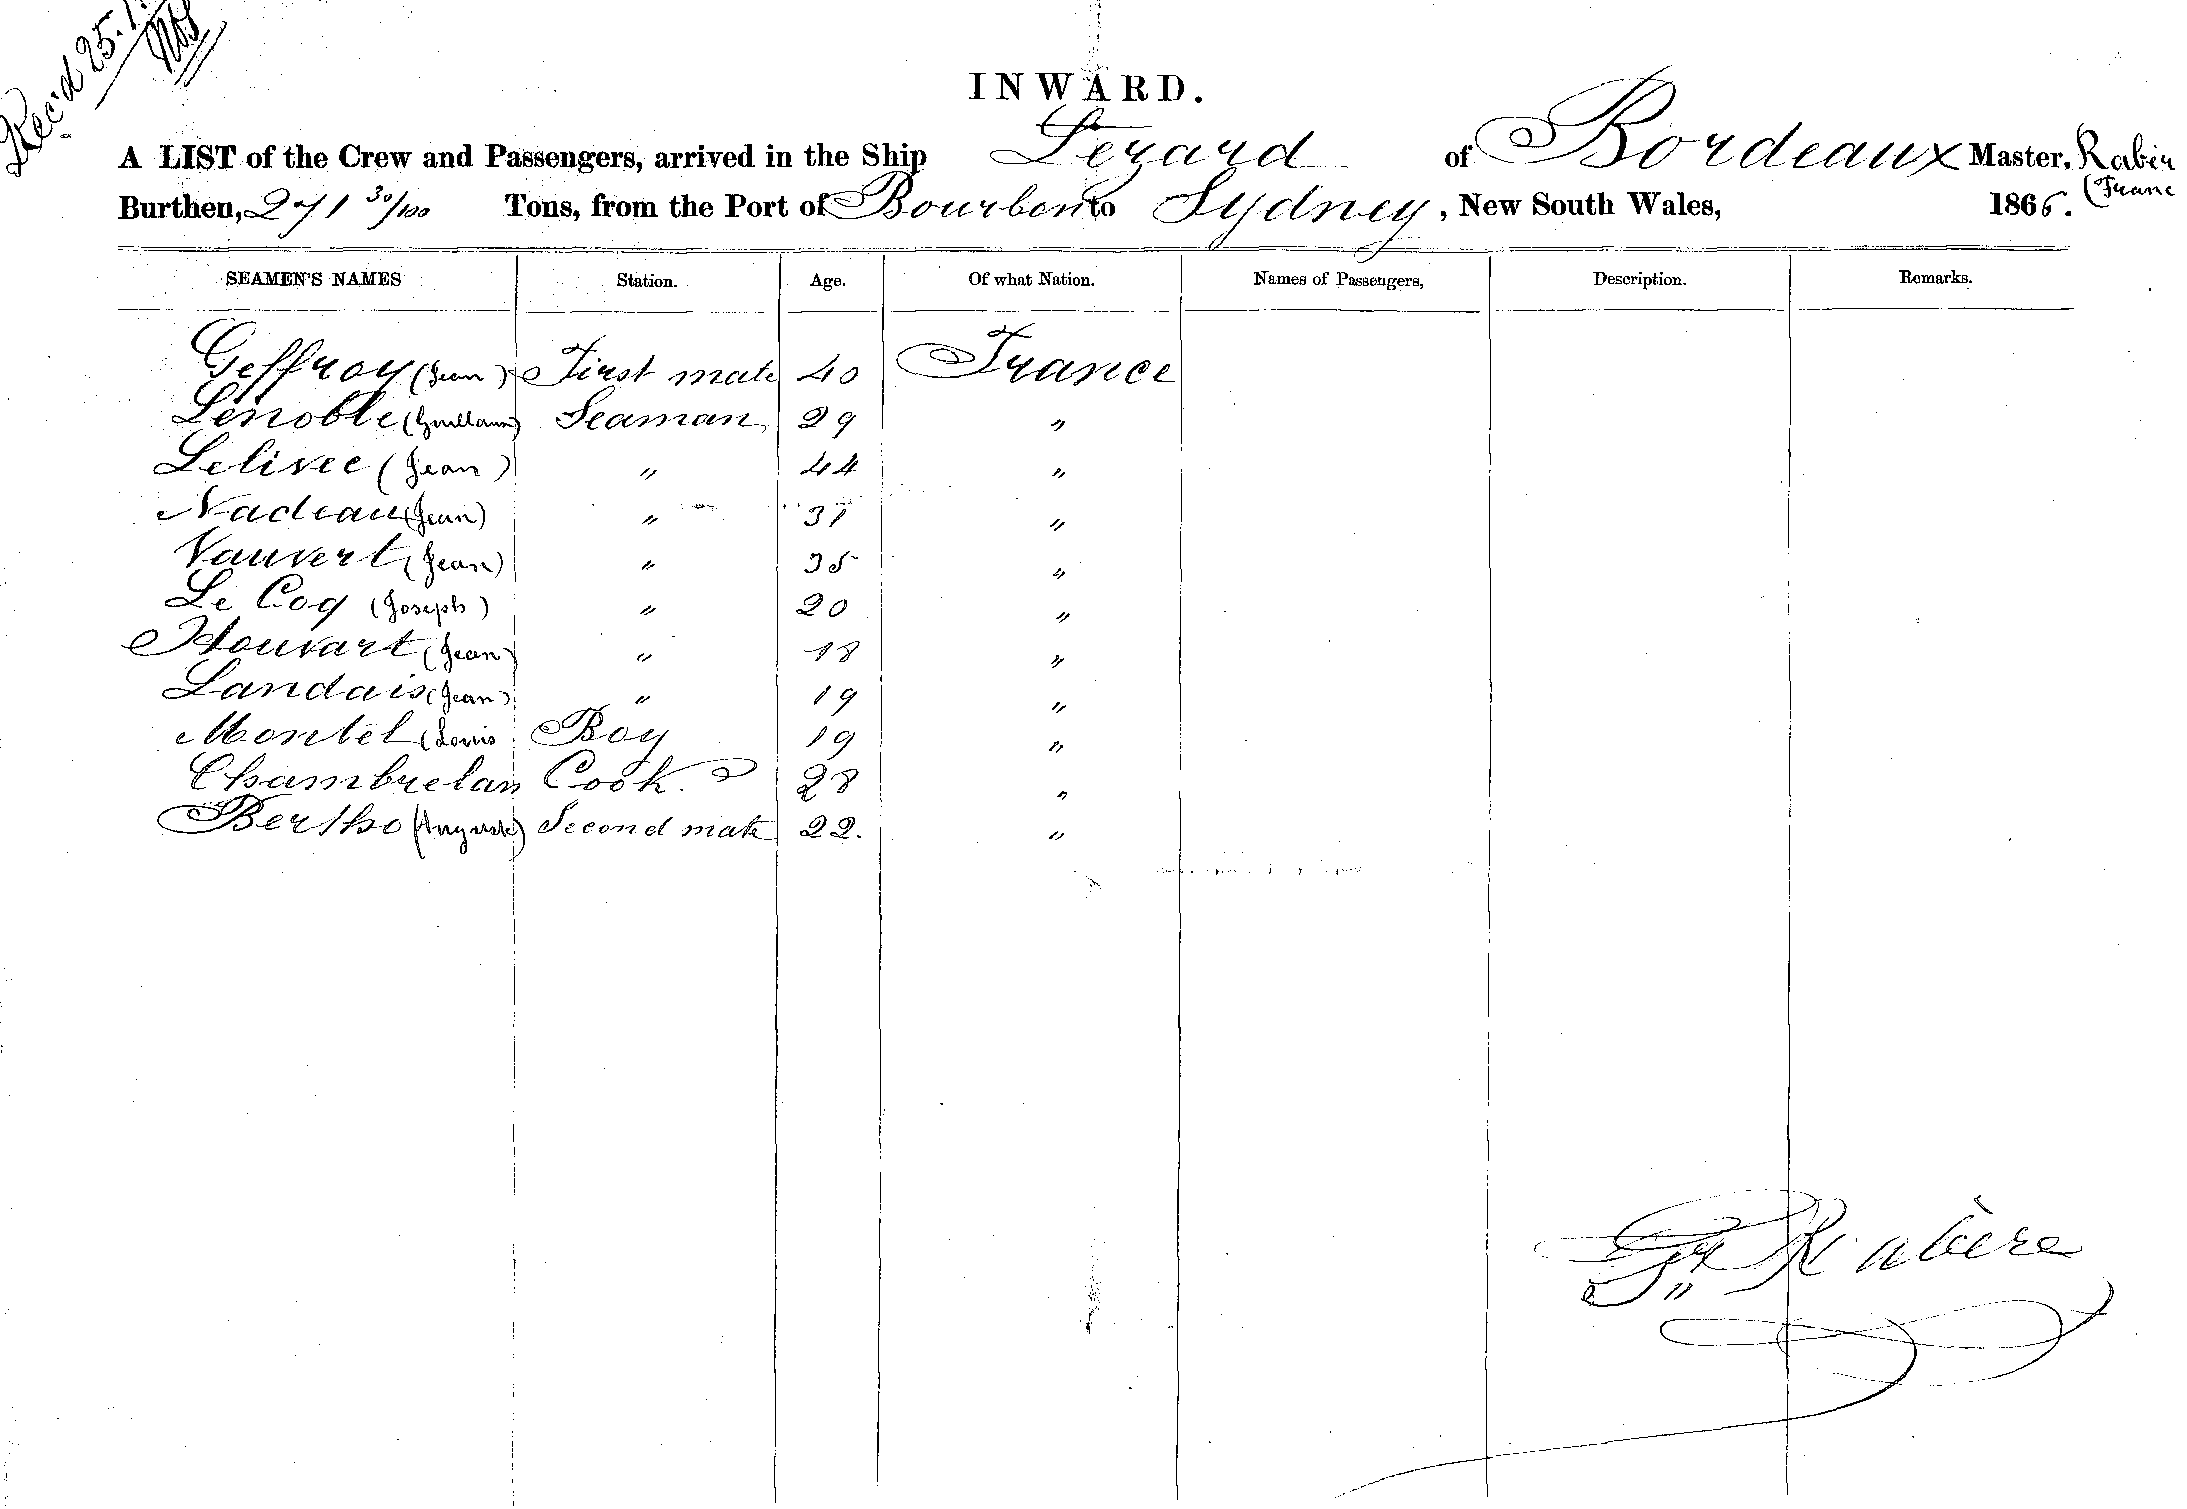 Rec'd 25.1.
INWARD.
A LIST of the Crew and Passengers, arrived in the Ship Lezard of Bordeaux Master, Rabèr
Burthen, 271 30/100 Tons, from the Port of Bourbon to Sydney, New South Wales, 1866. (Franc
SEAMEN'S NAMES Station. Age. Of what Nation. Names of Passengers, Description. Remarks.
Geffroy (Jean) First mate 40 France
Lenoble (Guillaum) Seaman 29 "
Lelivec (Jean) " 44 "
Nadeau (Jean) " 31 "
Vauvert (Jean) " 35 "
Le Coq (Joseph) " 20 "
Houvart (Jean) " 18 "
Landais (Jean) " 19 "
Montel (Louis Boy 19 "
Chambrelan Cook. 28 "
Bertho (Auguste) Second mate 22. "
Rabère